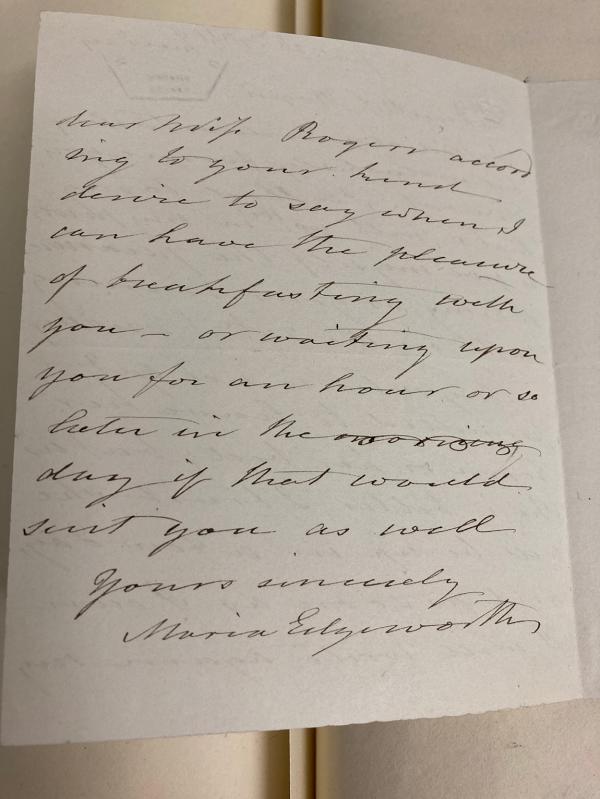 dear Miss Rogers accord
ing to your kind
desire to say when I
can have the pleasure
of breakfasting with
you – or waiting upon
you for an hour or so
later in the morning
day if that would
suit you as well
Yours sincerely
Maria Edgeworth